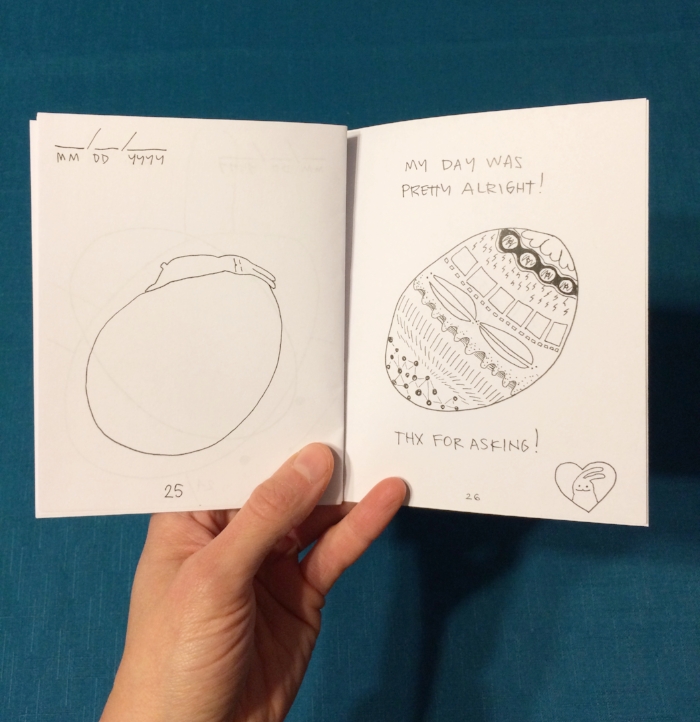 __/__/____
MM DD YYYY
25
MY DAY WAS
PRETTY ALRIGHT!
THX FOR ASKING!
26